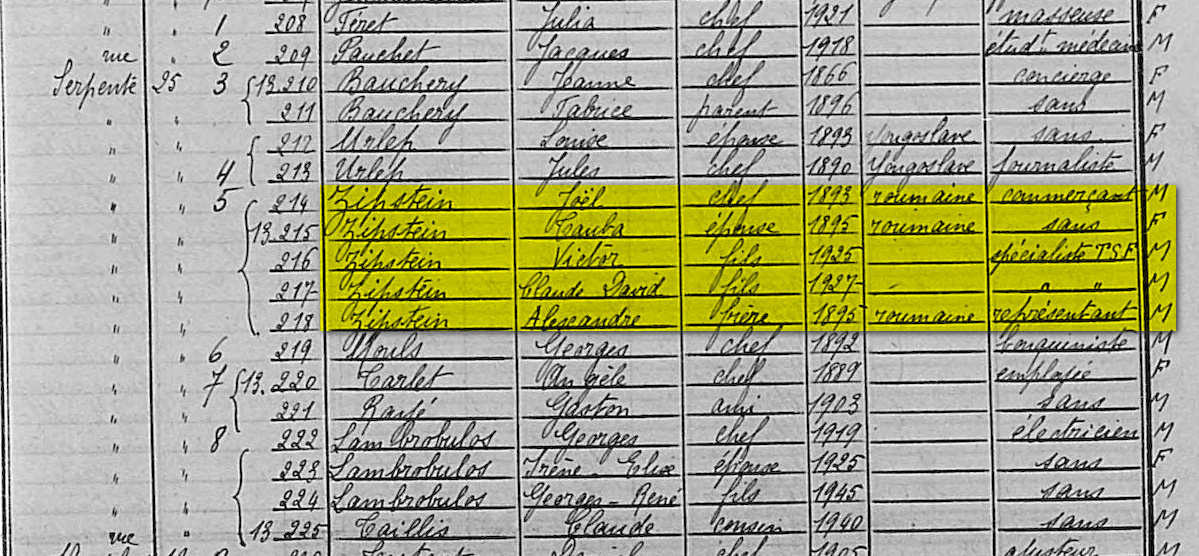 " 1 208 Féret Julia chef 1921 masseuse F
rue " 2 209 Pauchet Jacques chef 1918 étudt médecine M
Serpente 25 3 13 210 Bauchery Jeanne chef 1866 concierge F
" 211 Bauchery Fabrice parent 1896 sans M
" " 212 Urleh Louise épouse 1893 Yougoslave sans F
" " 4 213 Urleh Jules chef 1890 Yougoslave journaliste M
" " 5 214 Zipstein Joël chef 1893 roumaine commerçant M
" " 13 215 Zipstein Tauba épouse 1895 roumaine sans F
" " 216 Zipstein Victor fils 1925 spécialiste TSF M
" " 217 Zipstein Claude David fils 1927 " " M
" " 218 Zipstein Alexandre frère 1895 roumaine représentant M
" " 6 219 Georges chef 1892 bouquiniste M
" " 7 13. 220 Carlet Angèle chef 1889 employée F
" " 221 Gaston ami 1903 sans M
" " 8 222 Lambrobulos Georges chef 1919 électricien M
" " 223 Lambrobulos Irène-Elise épouse 1925 sans F
" " 224 Lambrobulos Georges-René fils 1945 sans M
rue " 13 225 Caillis Claude cousin 1940 sans M
chef 1905 ajusteur M